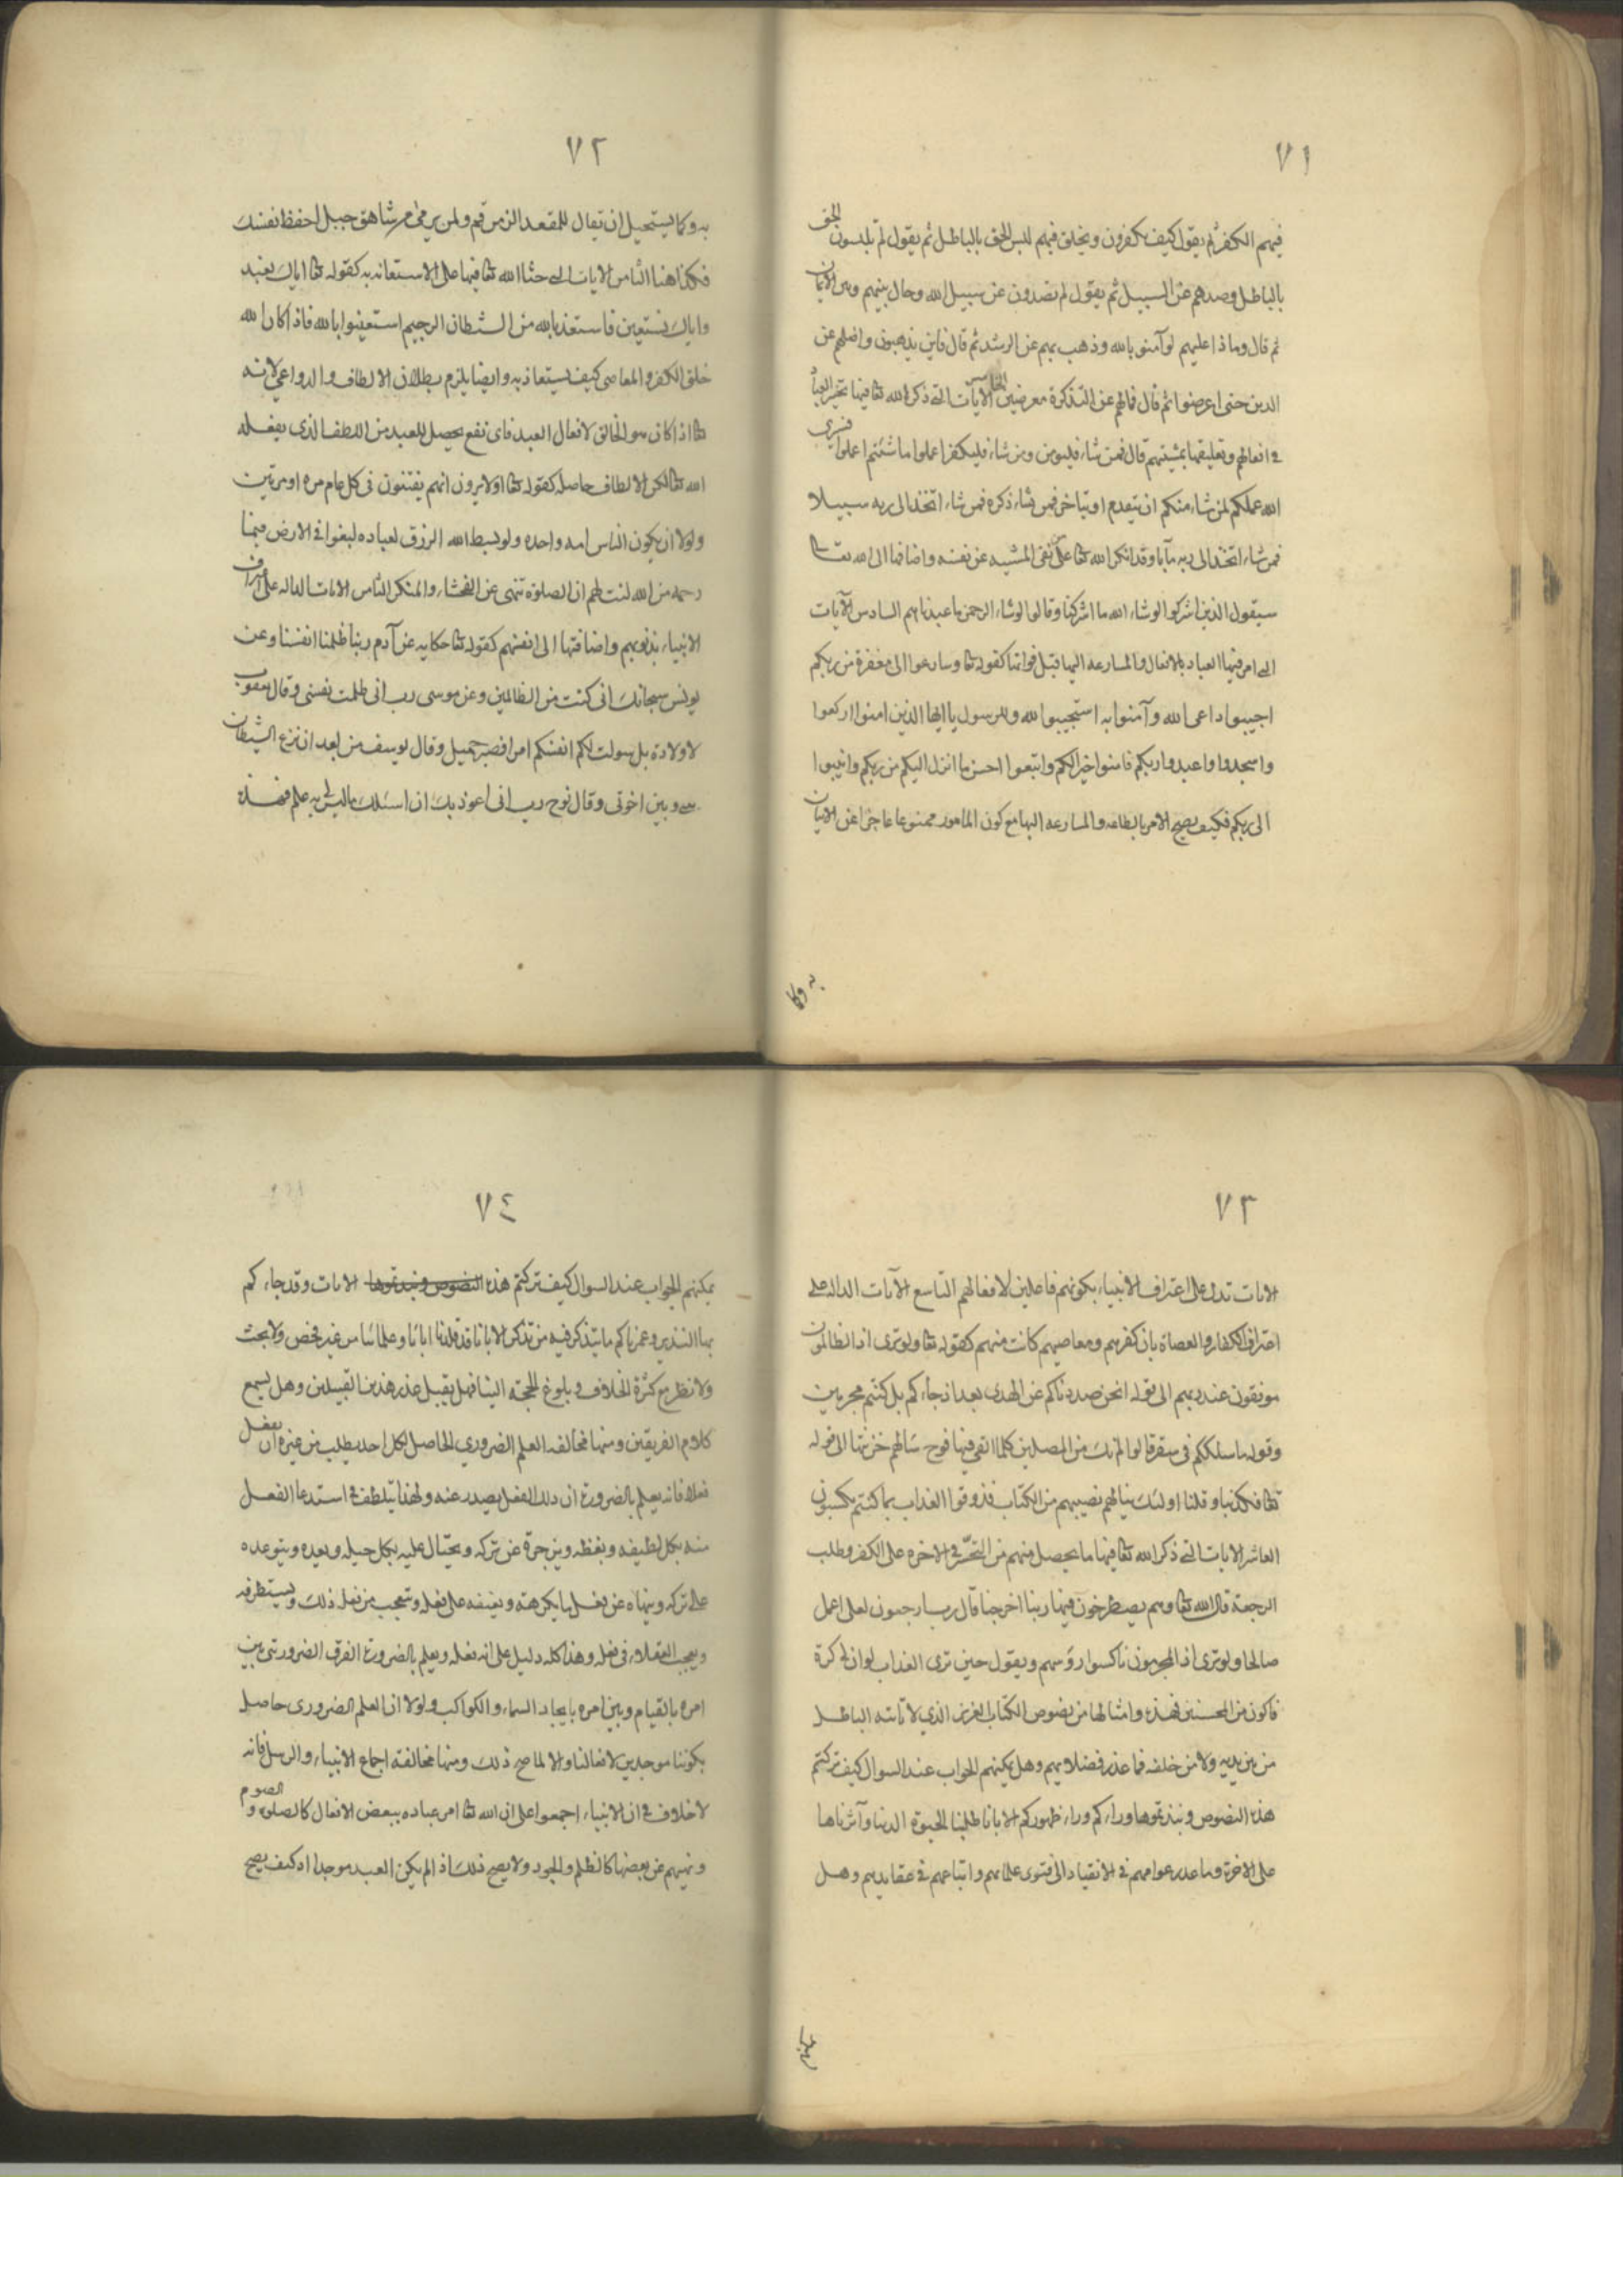 ٧١
فيهم الكفر ثم يقول كيف تكفرون ويخلق فيهم لبس الحق بالباطل ثم يقول لم تلبسون الحق
بالباطل وصدهم عن السبيل ثم يقول لم تصدون عن سبيل الله وحال بينهم وبين الايمان
ثم قال وماذا عليهم لو آمنوا بالله وذهب بهم عن الرشد ثم قال فاين تذهبون واضلهم عن
الدين حتى اعرضوا ثم قال فما لهم عن التذكرة معرضين الخامس الآيات التي ذكر الله تعا فيها تخيير العباد
في افعالهم وتعليقها بمشيتهم قال فمن شاء فليومن ومن شاء فليكفر اعملوا ما شئتم اعملوا فسيرى
الله عملكم لمن شاء منكم ان يتقدم او يتاخر فمن شاء ذكره فمن شاء اتخذ الى ربه سبيلا
فمن شاء اتخذ الى ربه مآبا وقد انكر الله تعا على من نفى المشيه عن نفسه واضافها الى الله تعا
سيقول الذين اشركوا لو شاء الله ما اشركنا وقالوا لو شاء الرحمن ما عبدناهم السادس الآيات
التي امر فيها العباد بالافعال والمسارعه اليها قبل فواتها كقوله تعا وسارعوا الى مغفرة من ربكم
اجيبوا داعى الله وآمنوا به استجيبوا لله وللرسول يا ايها الذين امنوا اركعوا
واسجدوا واعبدوا ربكم فامنوا خيرا لكم واتبعوا احسن ما انزل اليكم من ربكم وانيبوا
الى ربكم فكيف يصح الامر بالطاعه والمسارعه اليها مع كون المامور ممنوعا عاجزا عن الاتيان
به وكما
٧٢
به وكما يستحيل ان يقال للمقعد الزمن قم ولمن يرمى من شاهق جبل احفظ نفسك
فكذا هنا الثامن الايات التي حث الله تعا فيها على الاستعانه به كقوله تعا اياك نعبد
واياك نستعين فاستعذ بالله من الشطان الرجيم استعينوا بالله فاذا كان الله
خلق الكفر والمعاصى كيف يستعاذ به وايضا يلزم بطلان الالطاف والدواعى لانه
تعا اذا كان هو الخالق لافعال العبد فاى نفع يحصل للعبد من اللطف الذى يفعله
الله تعا لكن الالطاف حاصله كقوله تعا اولا يرون انهم يفتنون فى كل عام مره او مرتين
ولولا ان يكون الناس امه واحده ولو بسط الله الرزق لعباده لبغوا فى الارض فبما
رحمه من الله لنت لهم ان الصلوة تنهى عن الفحشاء والمنكر الثامن الايات الداله على اعتراف
الانبياء بذنوبهم واضافتها الى انفسهم كقوله تعا حكايه عن آدم ربنا ظلمنا انفسنا وعن
يونس سبحانك انى كنت من الظالمين وعن موسى رب انى ظلمت نفسى وقال يعقوب
لاولاده بل سولت لكم انفسكم امرا فصبر جميل وقال يوسف من بعد ان نزغ الشيطان
بينى وبين اخوتى وقال نوح رب انى اعوذ بك ان اسئلك ما ليس لى به علم فهذه
٧٣
الايات تدل على اعتراف الانبياء بكونهم فاعلين لافعالهم التاسع الآيات الداله على
اعتراف الكفار والعصاة بان كفرهم ومعاصيهم كانت منهم كقوله تعا ولو ترى اذ الظالمون
موقوفون عند ربهم الى قوله انحن صددناكم عن الهدى بعد اذ جاءكم بل كنتم مجرمين
وقوله ما سلككم فى سقر قالوا لم نك من المصلين كلما القى فيها فوج سالهم خزنتها الى قوله
تعا فكذبنا وقلنا اولئك ينالهم نصيبهم من الكتاب فذوقوا العذاب بما كنتم تكسبون
العاشر الايات التي ذكر الله تعا فيها ما يحصل منهم من التحسر فى الاخره على الكفر وطلب
الرجعة قال الله تعا وهم يصطرخون فيها ربنا اخرجنا قال رب ارجعون لعلى اعمل
صالحا ولو ترى اذ المجرمون ناكسوا رؤسهم ويقول حين ترى العذاب لو ان لى كرة
فاكون من المحسنين فهذه وامثالها من نصوص الكتاب العزيز الذي لا ياتيه الباطل
من بين يديه ولا من خلفه فما عذر فضلائهم وهل يمكنهم الجواب عند السوال كيف تركتم
هذه النصوص ونبذتموها وراءكم وراء ظهوركم الا بانا طلبنا الحيوة الدنيا وآثرناها
على الاخرة وما عذر عوامهم فى الانقياد الى فتوى علمائهم واتباعهم فى عقايدهم وهل
يمكنهم
٧٤
يمكنهم الجواب عند السوال كيف تركتم هذه النصوص ونبذتموها الايات وقد جاءكم
بها النذير وعمرناكم ما يتذكر فيه من تذكر الا بانا قد قلدنا اباءنا وعلمائنا من غير فحص ولا بحث
ولا نظر مع كثرة الخلاف وبلوغ الحجته الينا فهل يقبل عذر هذين القبيلين وهل يسمع
كلام الفريقين ومنها مخالفه العلم الضرورى الحاصل لكل احد يطلب من غيره ان يفعل
فعلا فانه يعلم بالضرورة ان ذلك الفعل يصدر عنه ولهذا يتلطف فى استدعا الفعل
منه بكل لطيفه ويعظه ويزجره عن تركه ويحتال عليه بكل حيله ويعده ويتوعده
على تركه وينهاه عن فعل ما يكرهه ويعنفه على فعله ويتعجب من فعل ذلك ويستطرفه
ويعجب العقلاء فى فعله وهذا كله دليل على انه فعله ويعلم بالضرورة الفرق الضرورى بين
امره بالقيام وبين امره بايجاد السماء والكواكب ولولا ان العلم الضرورى حاصل
بكوننا موجدين لافعالنا والا لما صح ذلك ومنها مخالفته اجماع الانبياء والرسل فانه
لا خلاف فى ان الانبياء اجمعوا على ان الله تعا امر عباده ببعض الافعال كالصلوة والصوم
ونهيهم عن بعضها كالظلم والجور ولا يصح ذلك اذا لم يكن العبد موجدا اذ كيف يصح